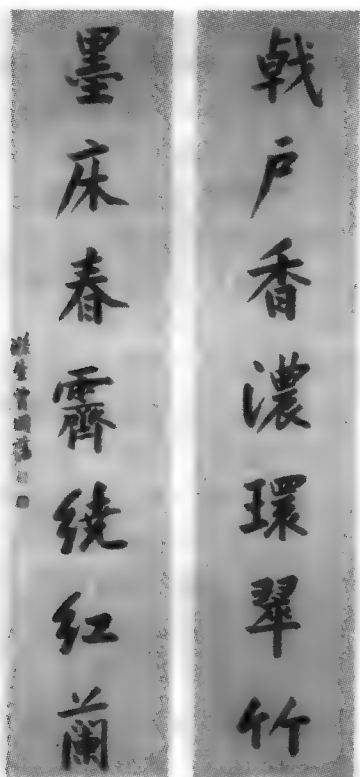 戟户香濃環翠竹
墨床春霽繞紅蘭